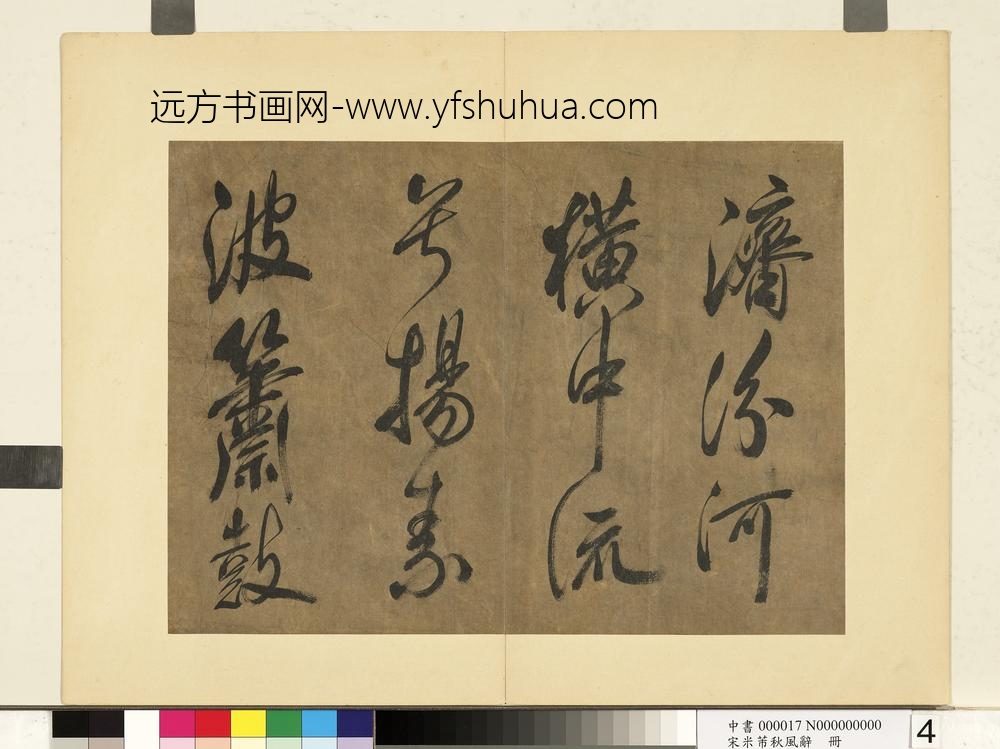 远方书画网-www.yfshuhua.com
濟汾河
橫中流
兮揚素
波簫鼓
中書 000017 N000000000
宋米芾秋風辭 冊
4